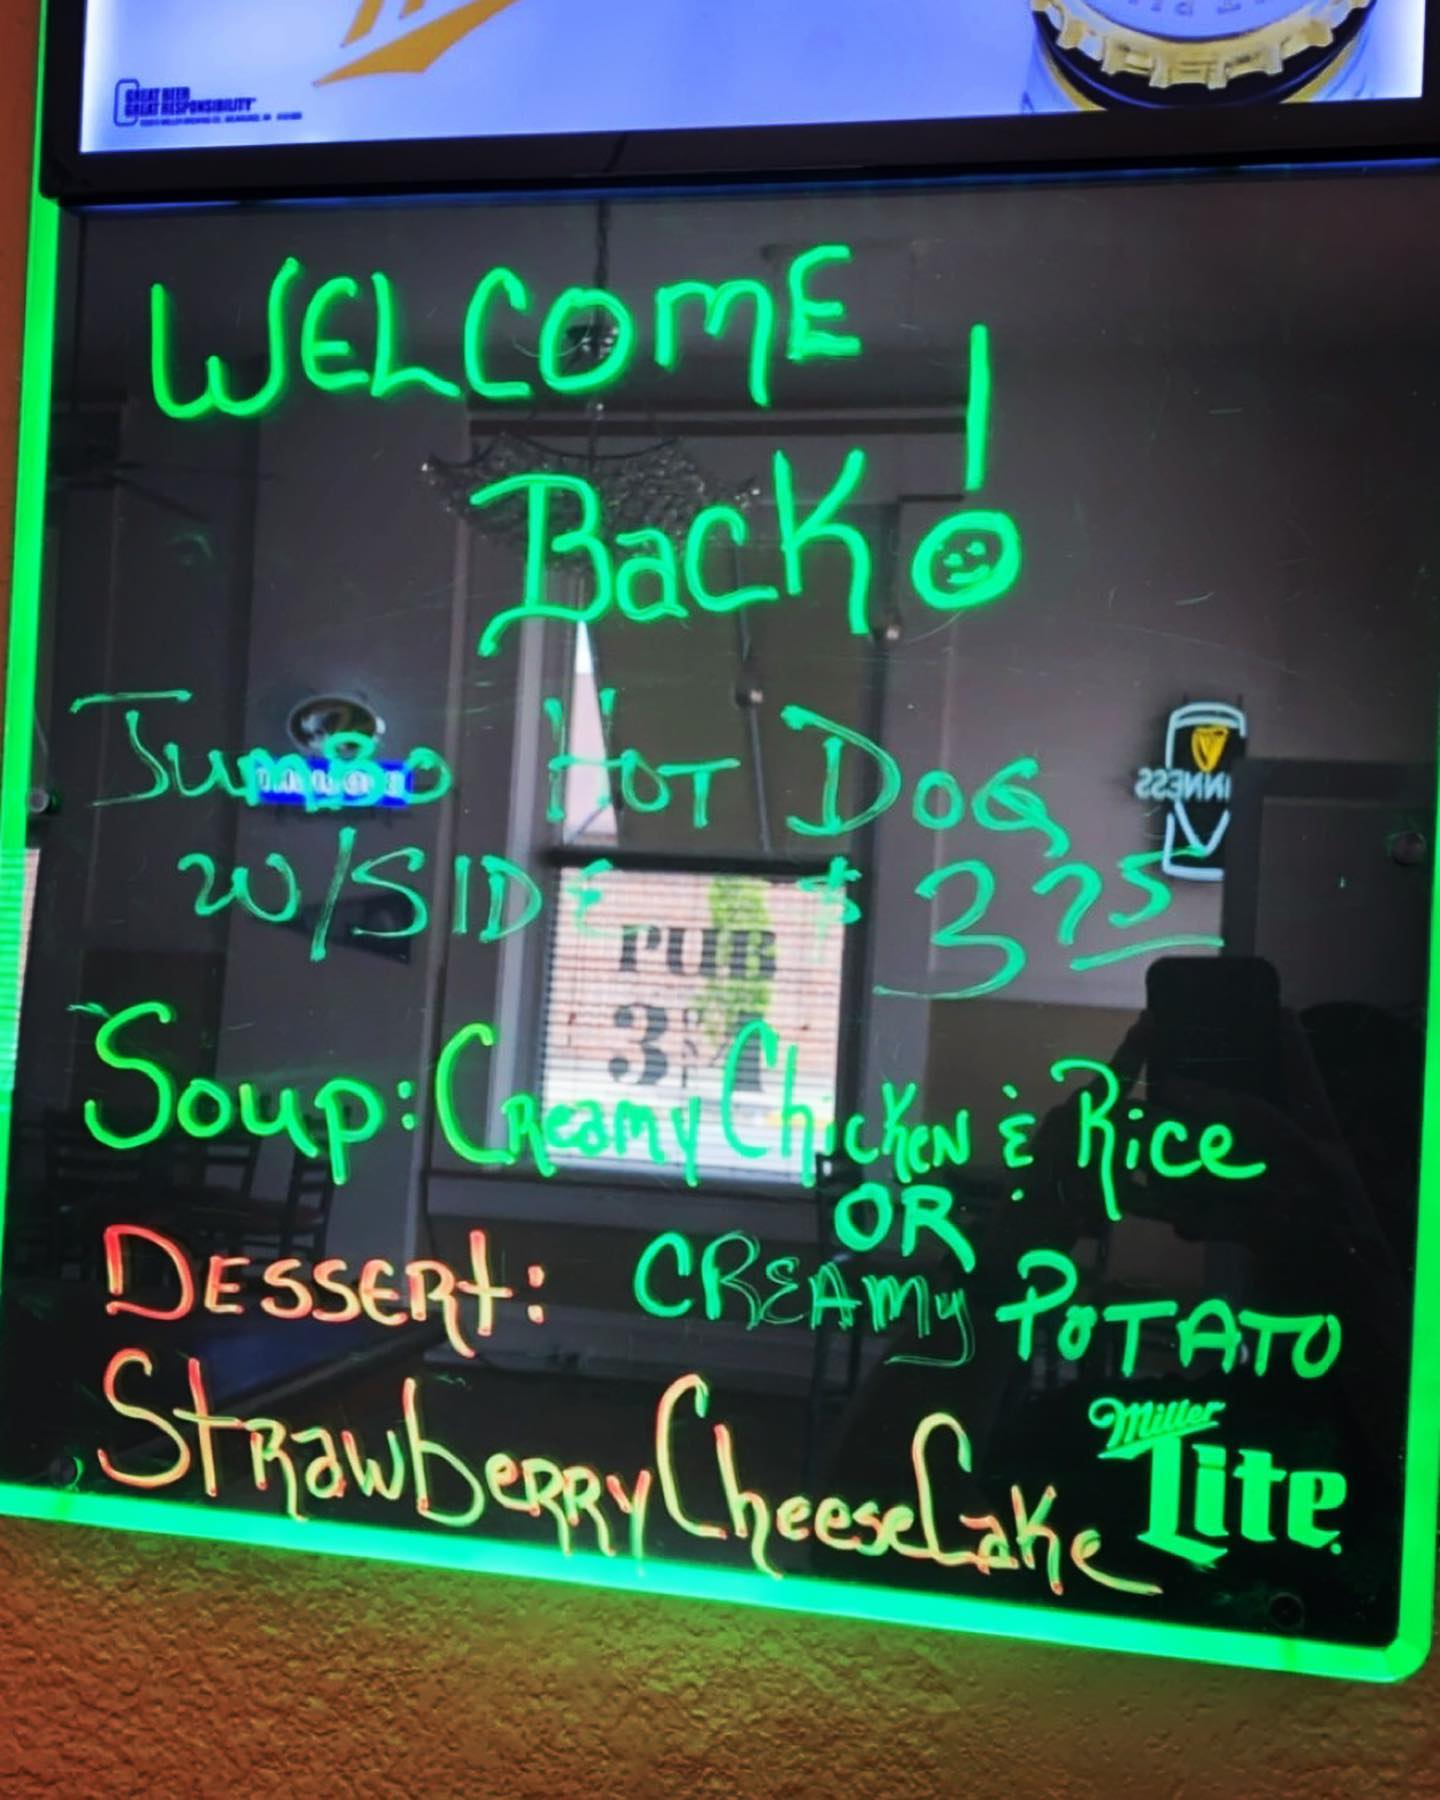 GREAT BEER
GREAT RESPONSIBILITY
WELCOME
BacK!
JumBo HOT DOG
W/SIDE $3 75
Soup: Creamy Chicken & Rice
OR
DESSERt: CREAMy POTATO
StRawbeRRy CheeseCake
Miller
Lite
GUINNESS
PUB